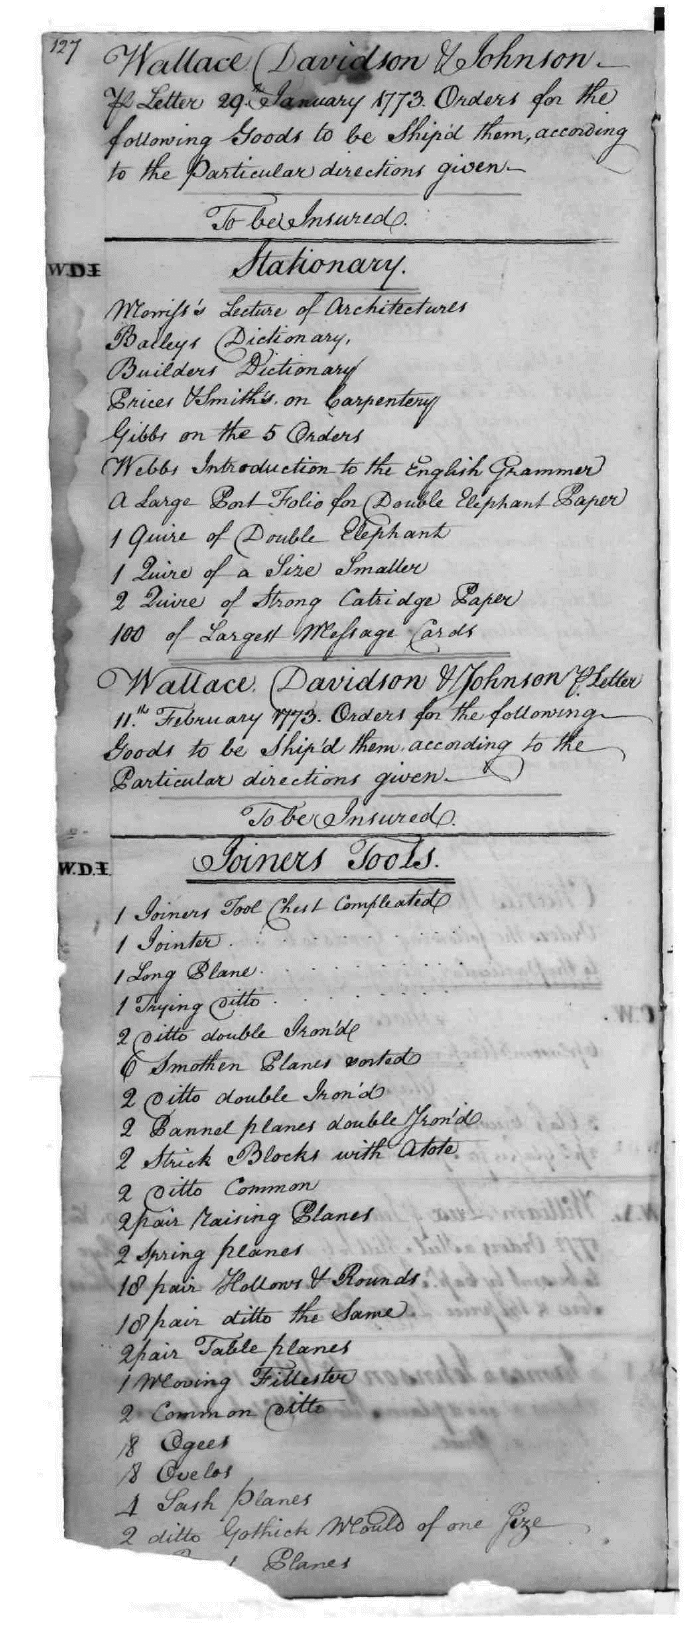 127
Wallace Davidson & Johnson
⅌ Letter 29th January 1773. Orders for the
following Goods to be Ship'd them, according
to the Particular directions given
To be Insured.
W.D.I
Stationary.
Morriss's Lecture of Architectures
Baileys Dictionary,
Builders Dictionary
Prices & Smith's on Carpentery
Gibbs on the 5 Orders
Webbs Introduction to the English Grammer
A Large Port Folio for Double Elephant Paper
1 Quire of Double Elephant
1 Quire of a Size Smaller
2 Quire of Strong Catridge Paper
100 of Largest Message Cards
Wallace Davidson & Johnson ⅌ Letter
11.th February 1773. Orders for the following
Goods to be Ship'd them according to the
Particular directions given.
To be Insured.
W.D.I
Joiners Tools.
1 Joiners Tool Chest Compleated
1 Jointer
1 Long Plane
1 Trying ditto
2 ditto double Iron'd
6 Smothen Planes sorted
2 ditto double Iron'd
2 Pannel planes double Iron'd
2 Strick Blocks with atote
2 ditto Common
2 pair Raising Planes
2 Spring planes
18 pair Hollows & Rounds
18 pair ditto the Same
2 pair Table planes
1 Moving Fillester
2 Common ditto
8 Ogees
8 Ovelos
4 Sash planes
2 ditto Gothick Mould of one Size
Planes